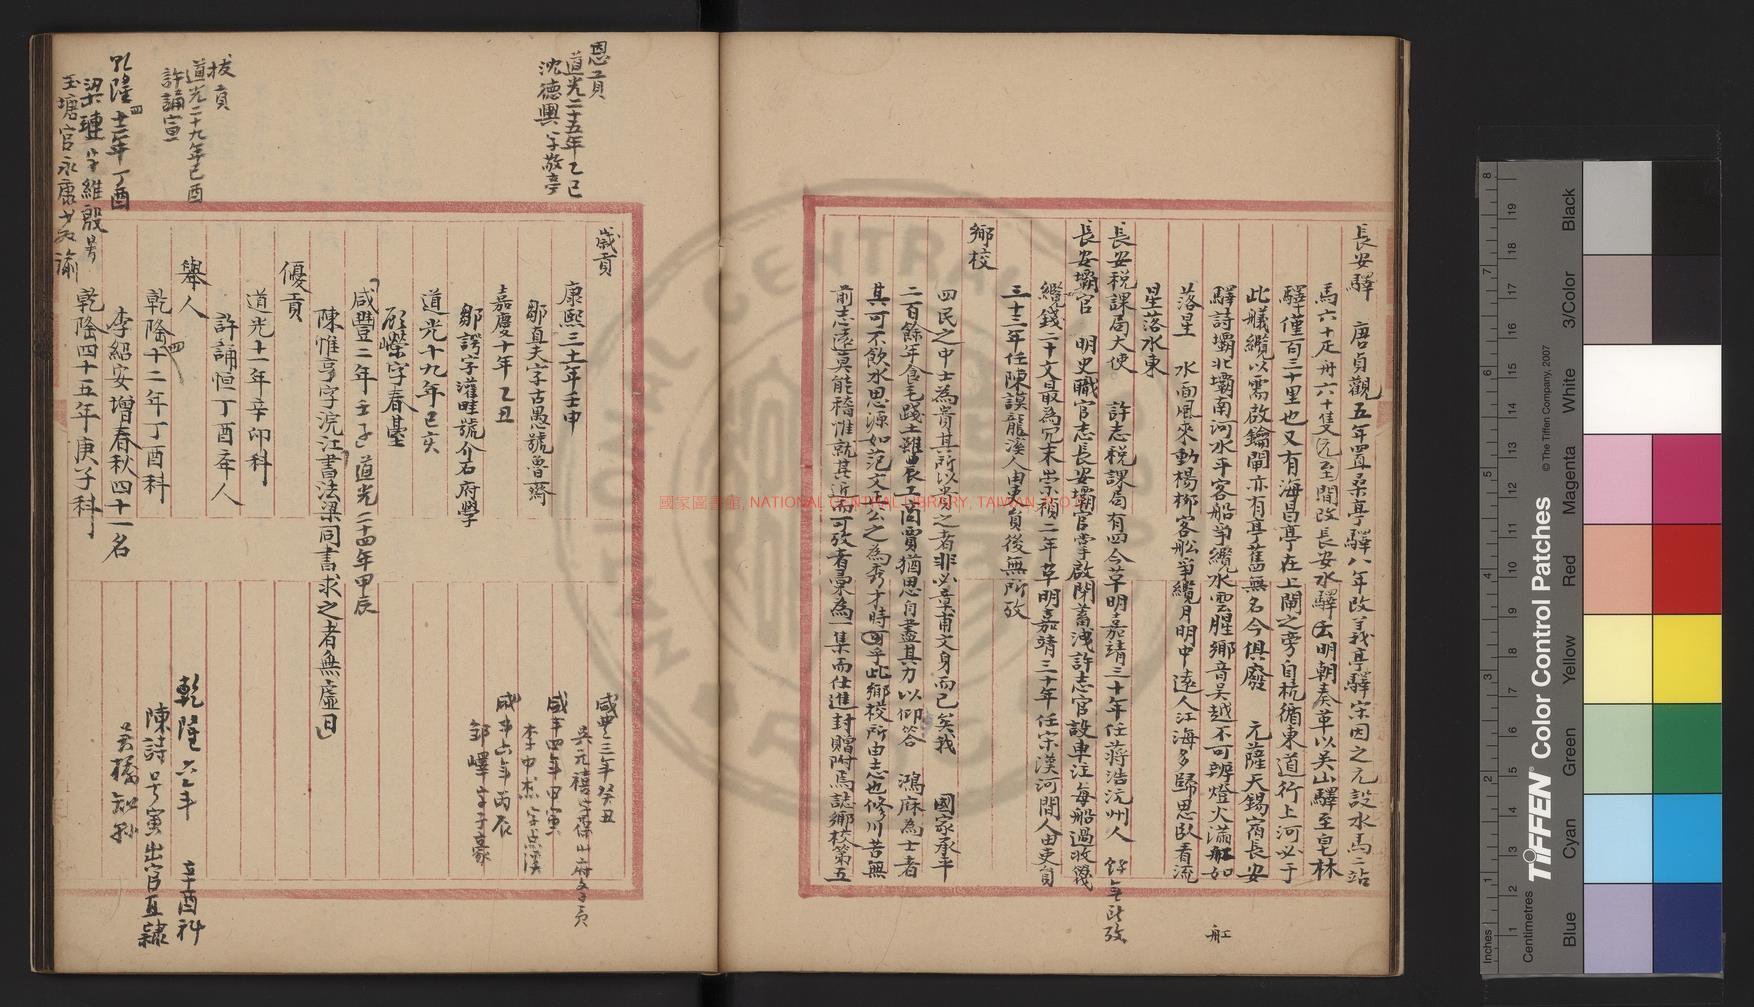 長安驛　唐貞觀五年置桑亭驛八年改義亭驛宋因之元設水馬二站
馬六十疋舟六十隻元至間改長安水驛去明朝奏革以吳山驛至皂林
驛僅百三十里也又有海昌亭在上閘之旁自杭循東道行上河必于
此艤纜以需啟鑰閘亦有亭舊無名今俱廢　元薩天錫宿長安
驛詩壩北壩南河水平客船爭纜水雲腥鄉音吳越不可辨燈火滿缸如
缸
落星　水面風來動楊柳客船爭纜月明中遠人江海多歸思臥看流
星落水東
長安稅課局大使　許志稅課局有四今革明嘉靖三十年任蔣浩沅州人
長安壩官　明史職官志長安壩官掌啟閉蓄洩許志官設車江海船過收幾
纜錢一十文最為冗末崇禎二年革明嘉靖三十年任宋漢河間人由吏員
三十三年任陳謨龍溪人由吏員後無所攷
鄉校
四民之中士為貴其所以貴之者非必章甫文身而已矣我　國家承平
二百餘年食毛踐土雖農工商賈猶思自盡其力以仰答　鴻庥為士者
其可不飲水思源如范文正公之為秀才時可乎此鄉校所由志也修川苦無
前志遂莫能稽惟就其近而可攷者彙為一集而仕進封贈附焉誌鄉校第五
恩貢
道光二十五年乙巳
沈德興字敬亭
歲貢
康熙三十一年壬申
鄒直夫字古愚號魯齋
嘉慶十年乙丑
鄒諤字灌畦號介石府學
道光十九年己亥
咸豐二年壬子道光二十四年甲辰
陳惟亨字浣江書法梁同書求之者無虛日
優貢
道光十一年辛卯科
許誦恒丁酉舉人
咸豐三年癸丑
咸豐四年甲寅
咸豐六年丙辰
鄒嶧字子豪
拔貢
道光二十九年己酉
許誦宣
舉人
乾隆四十二年丁酉科
李紹安增春秋四十一名
乾隆四十五年庚子科
乾隆四十二年丁酉
梁璉字維殷號
玉塘官永康教諭
乾隆六年　辛酉科
陳詩號寅出官直隸